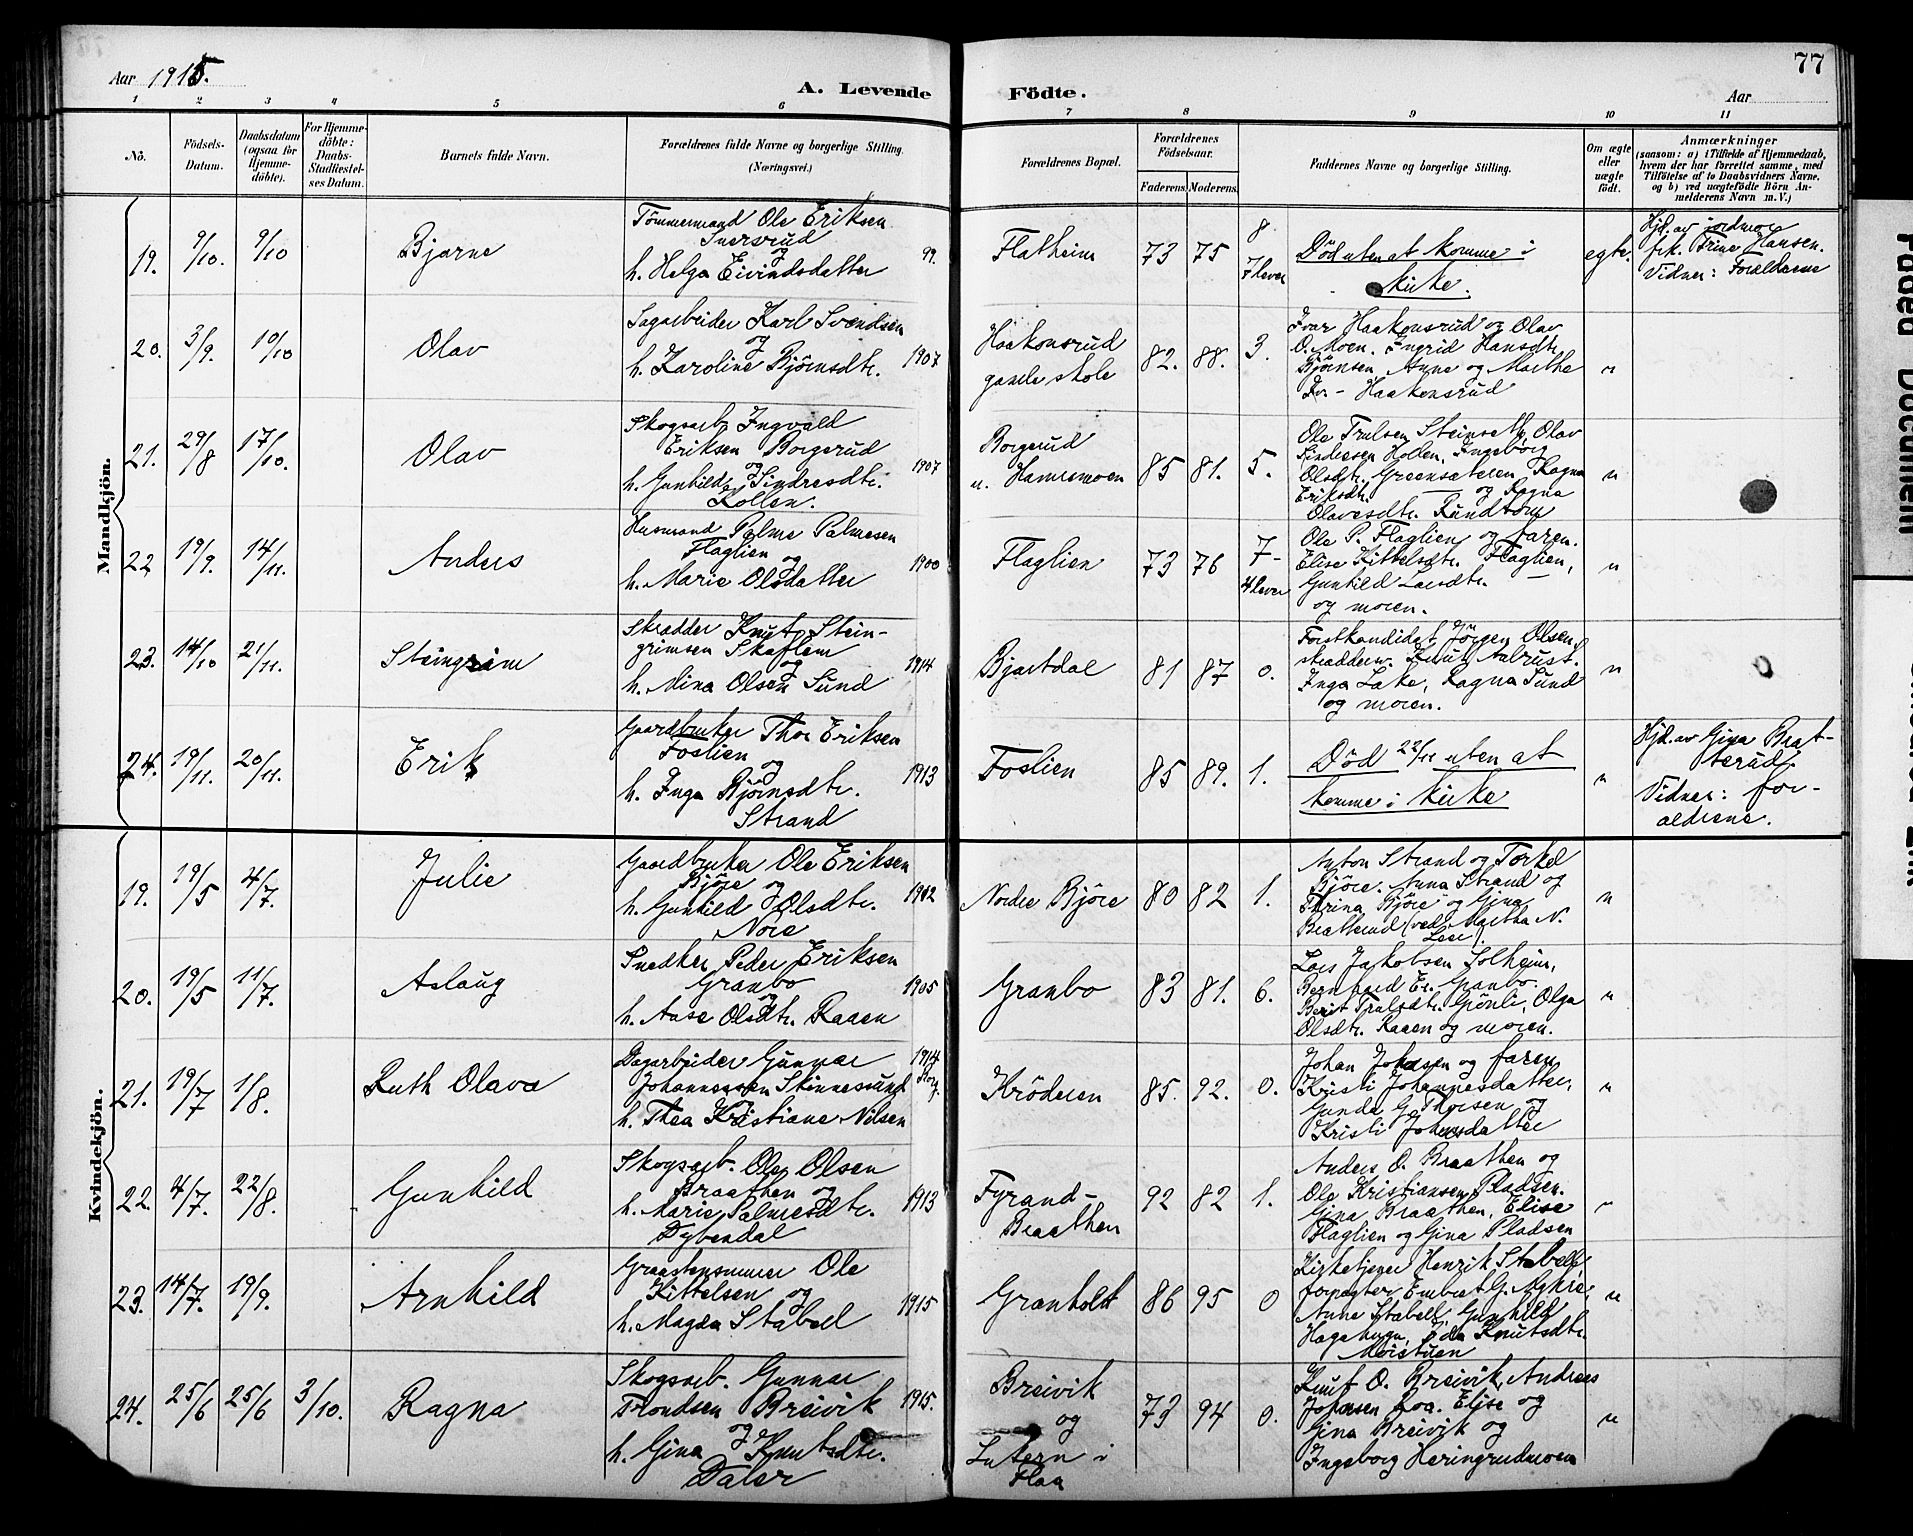 77
Aar 1915.
A. Levende Födte.
Aar
1 2 3 4 5 6 7 8 9 10 11
No.
Födsels-Datum.
Daabsdatum (ogsaa for Hjemme-döbte).
For Hjemme-döbte: Daabs-Stadfæstel-ses Datum.
Barnets fulde Navn.
Forældrenes fulde Navne og borgerlige Stilling.
(Næringsvei.)
Forældrenes Bopæl.
Forældrenes Födselsaar.
Faderens.
Moderens.
Faddernes Navne og borgerlige Stilling.
Om ægte eller uægte födt.
Anmærkninger
(saasom: a) i Tilfælde af Hjemmedaab,
hvem der har forrettet samme, med
Tilföielse af to Daabsvidners Navne,
og b) ved uægtefödte Börn An-
melderens Navn m.V.)
Mandkjön.
19. 9/10. 9/10 Bjarne
Tömmermand Ole Eriksen
og
h. Helga Eivindsdatter 99.
Flatheim 73 75 8. 7 lever
Död uten at komme i
kirke.
egte.
Hjd. av jordmor
frk. Trine Hansen.
Vidner: Forældrene
20. 3/9. 10/10 Olav
Sagarbeider Karl Svendsen
og
h. Karoline Björnsdtr. 1907
Haakonsrud
gamle skole 82. 88. 3.
Ivar Haakonsrud og Olav
O. Moen. Ingrid Hansdtr.
Björnsen, Anne og Marthe
Haakonsrud
"
21. 29/8 17/10. Olav
Skogsarb. Ingvald
Eriksen Borgerud
og
h. Gunhild Sindresdtr.
Kollen. 1907
Borgerud
u. Hamremoen 85 81. 5.
Ole Trulsen Steinseth, Olav
Sindresen Kollen, Ingeborg
Olsdtr. Grønsæteren, Ragna
Eriksdtr. og Ragna
Olavesdtr. Rundtom
"
22 19/9. 14/11. Anders
Husmand Palme Palmesen
Flaglien og
h. Marie Olsdatter 1900
Flaglien 73 76 7-
4 lever
Ole P. Flaglien og faren.
Elise Kittelsdtr. Flaglien,
Gunhild Larsdtr.
og moren.
"
23. 14/10 21/11. Steingrim
Skrædder Knut Stein-
grimsen Skaflem
og
h. Mina Olsen Sund 1914
Bjertdal 81 87 0.
Forstkandidat Jörgen Olsen,
skrædderm. Knut Aalrust.
Inga Lake, Ragna Sund
og moren.
"
24. 19/11. 20/11. Erik
Gaardbruker Thor Eriksen
Foslien
og
h. Inga Björnsdtr.
Strand 1913
Foslien 85 89. 1.
Död 22/11 uten at
komme i kirke
"
Hjd. av Gina Brat-
terud
Vidner: for-
ældrene.
Kvindekjön.
19. 19/5 4/7. Julie
Gaardbruker Ole Eriksen
Björe og
h. Gunhild Olsdtr.
Nore 1912
Nordre Björe 80 82 1.
Anton Strand og Torkel
Björe. Anna Strand og
Thrina Björe og Gina
Bratterud (ved Martha N.
"
20. 19/5 11/7. Aslaug
Snedker Peder Eriksen
Granbo
og
h. Aase Olsdtr. Raaen 1905
Granbo 83 81. 6.
Lars Jakobsen Solheim,
Bernhard Er. Granbo.
Berit Trulsdtr. Grönli, Olga
Olsdtr. Raaen og moren.
"
21. 19/7 1/8. Ruth Olava
Dagarbeider Gunnar
Johannessen Stinnesund
h. Thea Kristiane Nilsen 1914
Kröderen 85. 92. 0.
Johan Johnsen og faren
Kristi Johannesdatter,
Gunda G. Thorsen og
Kristi Johnsdatter
"
22. 4/7. 22/8. Gunhild
Skogsarb. Ole Olsen
Braathen og
h. Marie Palmesdtr.
Dybendal 1913
Fyrand-
Braathen 92 82 1.
Anders O. Braathen og
Ole Kristiansen Pladsen.
Gina Braathen, Elise
Flaglien og Gina Pladsen
"
23. 14/7. 19/9. Arnhild
Ole
Kittelsen og
h. Magda Stabell 1915
Granholt 86 95 0
Kirketjener Henrik Stabell,
forpagter Embret G. Myhre,
Anne Stabell, Gunhild
Hagehugu, Ida Knutsdtr.
Moistuen
"
24. 25/6 25/6 3/10. Ragna
Skogsarb. Gunnar
Trondsen Breivik
og
h. Gina Knutsdtr.
Daler 1915.
Breivik
og
i
Flaa 73 94 0.
Knut O. Breivik, Andreas
Johnsen Roa. Elise og
Gina Breivik og
Ingeborg Heringrudmoen
"
Faded Document